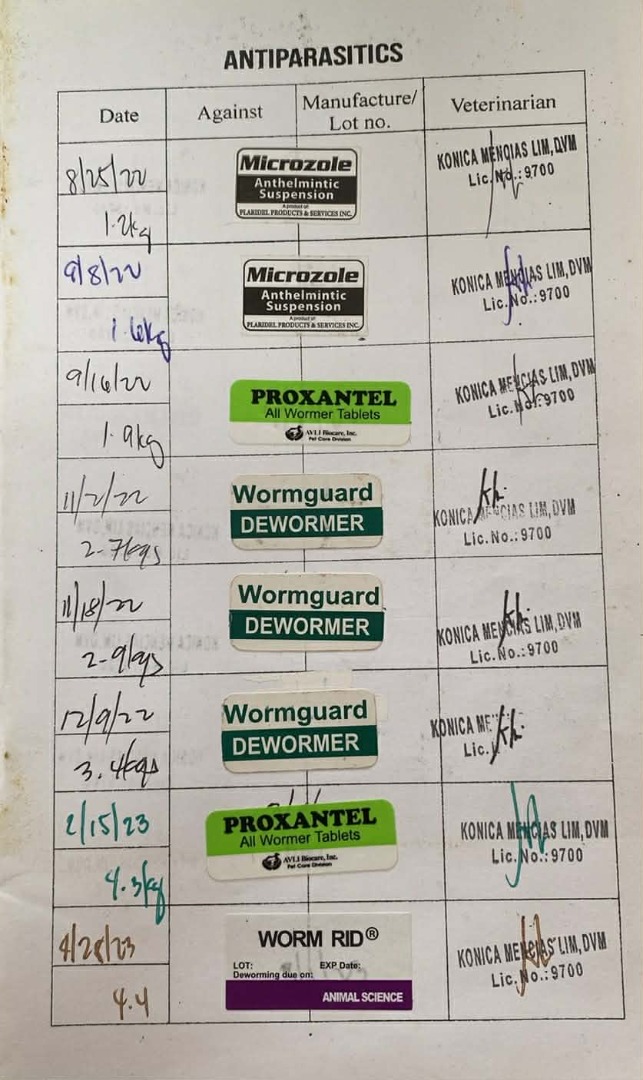 ANTIPARASITICS
Date Against Manufacture/ Lot no. Veterinarian
8/25/22
1.2kg
Microzole
Anthelmintic
Suspension
A product of:
PLARIDEL PRODUCTS & SERVICES INC.
KONICA MENCIAS LIM, DVM
Lic. No.: 9700
9/8/22
1.6kg
Microzole
Anthelmintic
Suspension
A product of:
PLARIDEL PRODUCTS & SERVICES INC.
KONICA MENCIAS LIM, DVM
Lic. No.: 9700
9/16/22
1.9kg
PROXANTEL
All Wormer Tablets
AVLI Biocare, Inc.
Pet Care Division
KONICA MENCIAS LIM, DVM
Lic. No.: 9700
11/2/22
2.7kgs
Wormguard
DEWORMER
KONICA MENCIAS LIM, DVM
Lic. No.: 9700
11/18/22
2.9kgs
Wormguard
DEWORMER
KONICA MENCIAS LIM, DVM
Lic. No.: 9700
12/9/22
3.4kgs
Wormguard
DEWORMER
KONICA ME
Lic.
2/15/23
4.3kg
PROXANTEL
All Wormer Tablets
AVLI Biocare, Inc.
Pet Care Division
KONICA MENCIAS LIM, DVM
Lic. No.: 9700
4/28/23
4.4
WORM RID®
LOT: EXP Date:
Deworming due on:
ANIMAL SCIENCE
KONICA MENCIAS LIM, DVM
Lic. No.: 9700